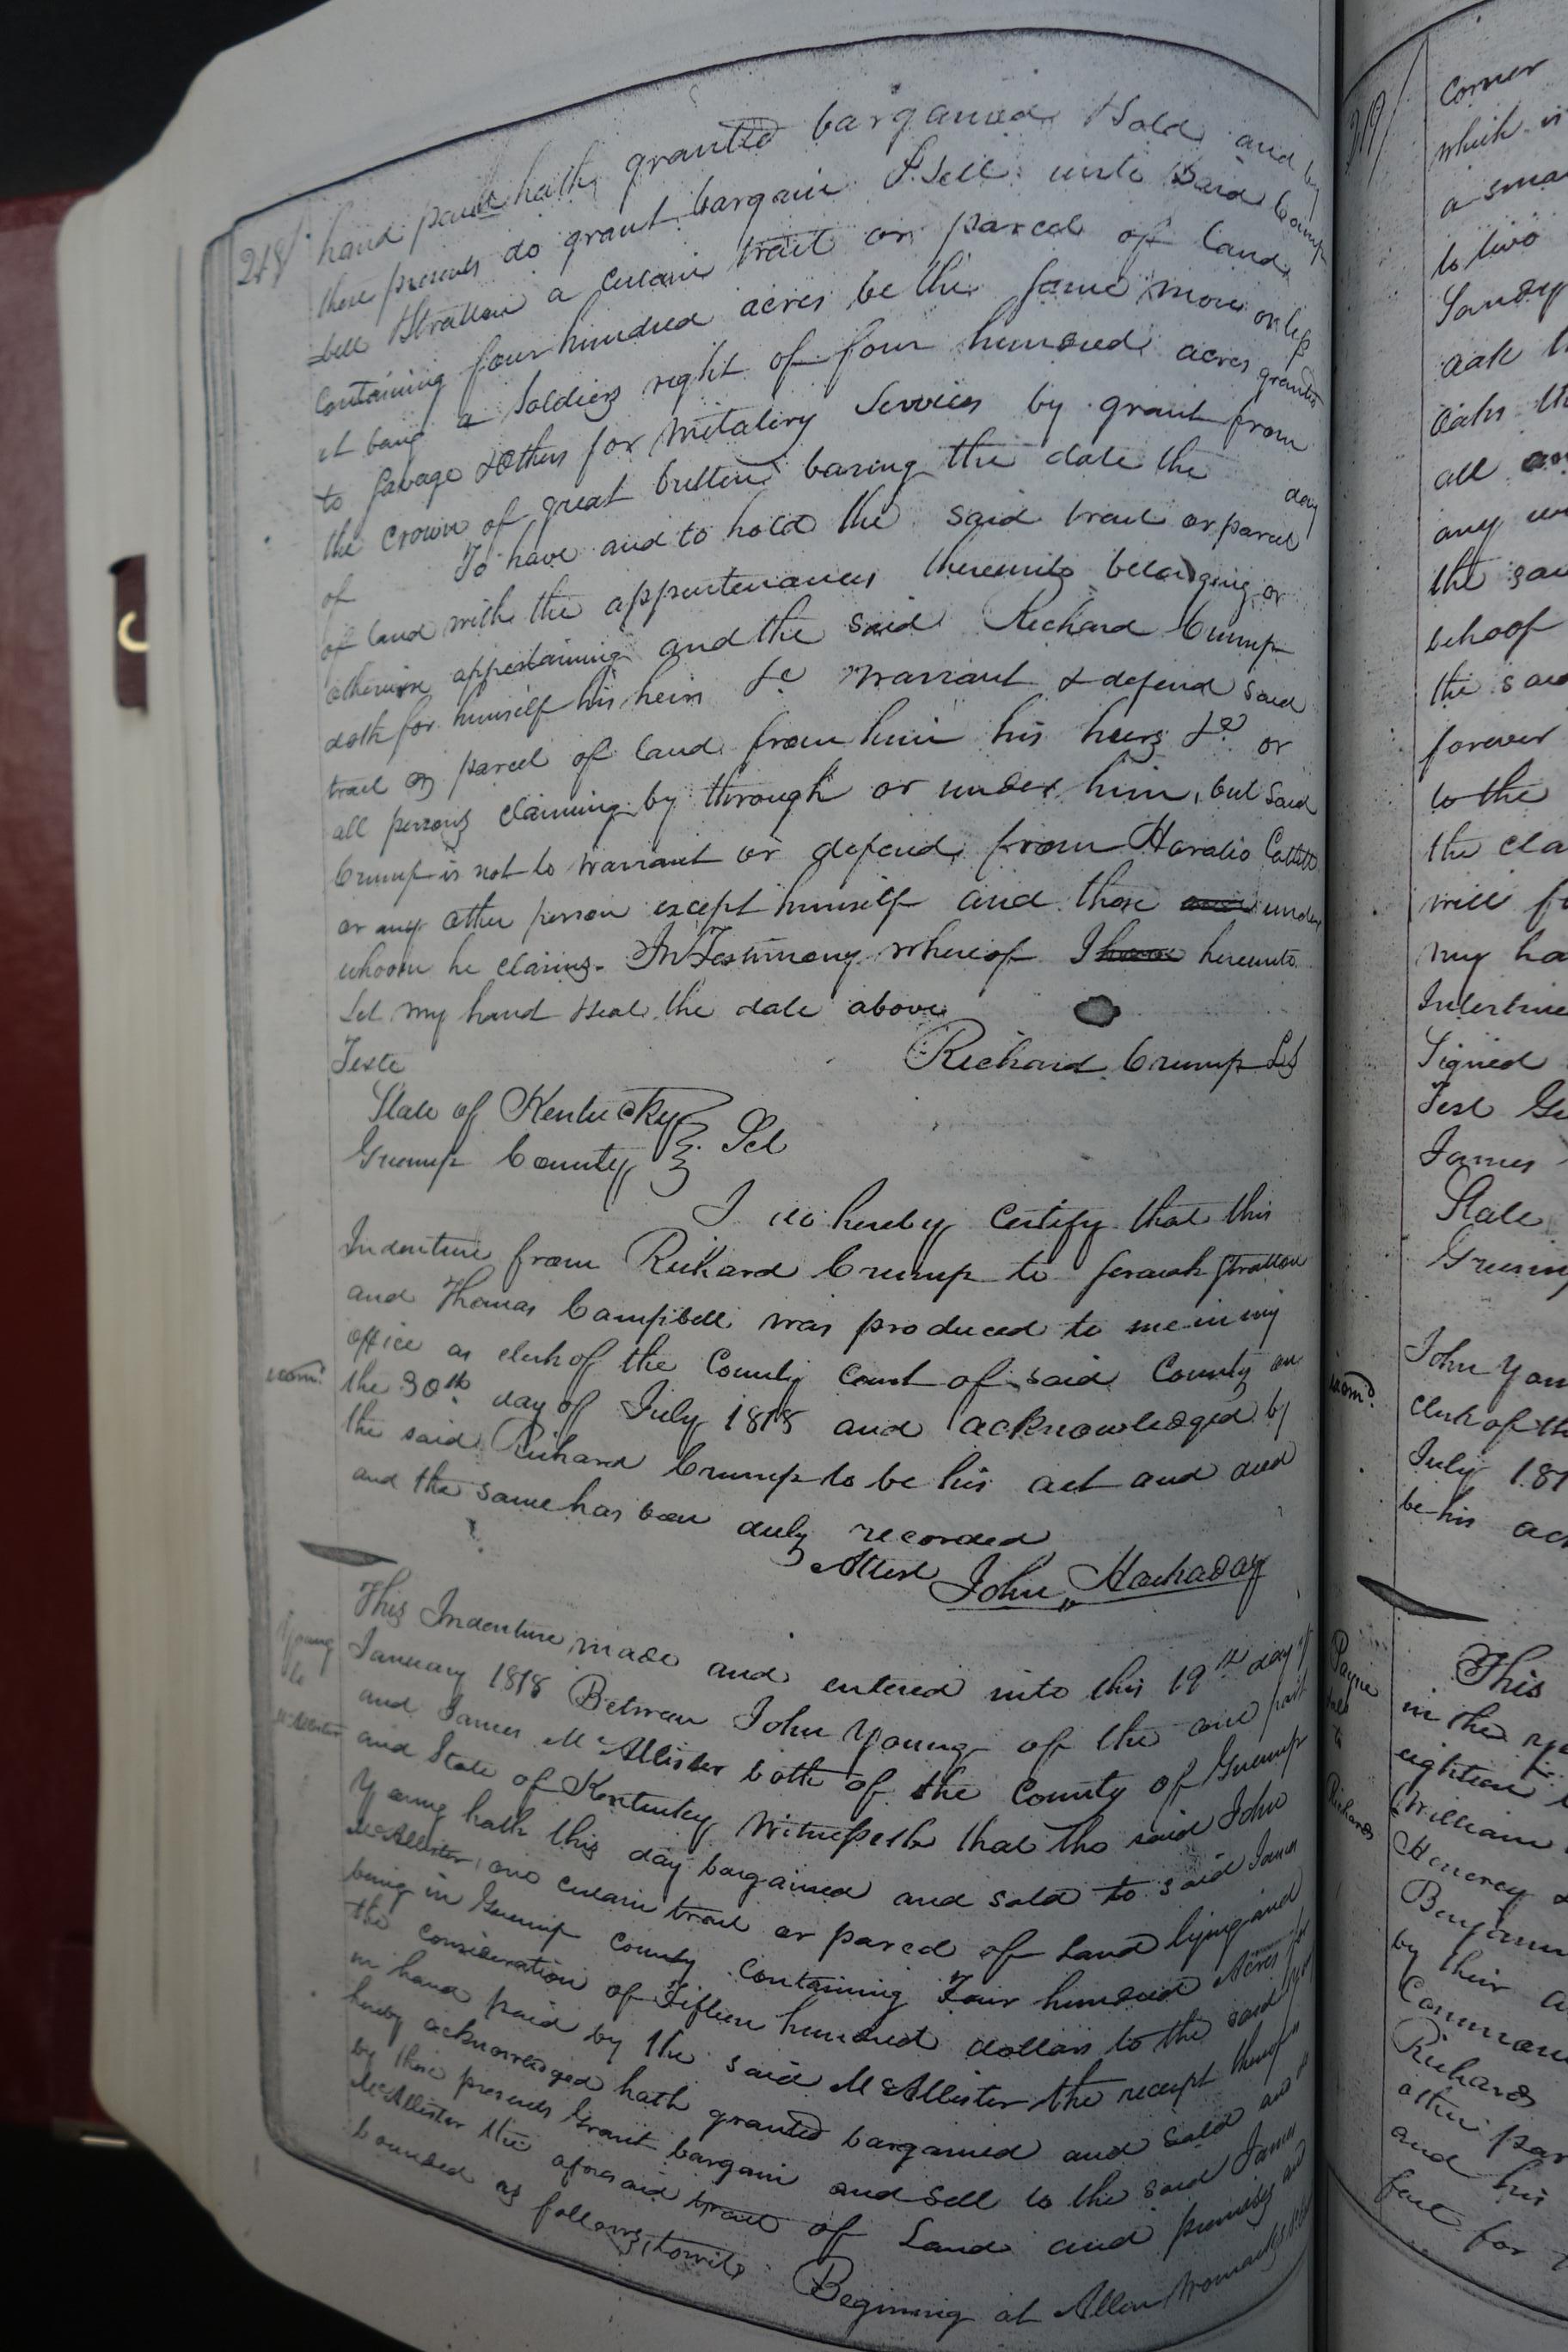 218/ hand paid hath granted bargained & Sold and by
these presents do grant bargain & Sell unto Said Camp
bell & Stratton a certain tract or parcel of land
Containing four hundred acres be the same more or less
it being a Soldiers right of four hundred acres granted
to Savage & Others for Militaliry Services by grant from
the Crown of great brittend baring the date the day
of To have and to hold the said tract or parcel
of land with the appurtenances thereunto belonging or
otherwise appertaining and the said Richard Crump
doth for himself his heirs &c Warrant & defend said
tract or parcel of land from him his heirs &c or
all persons claiming by through or under him, but said
Crump is not to warrant or defend from Horatio Catlett
or any other person except himself and those under
whoom he claims. In Testimony whereof I have hereunto
Set my hand & seal the date above
Teste Richard Crump LS
State of Kentucky
Greenup County } Sct
I do hereby Certify that this
Indenture from Richard Crump to Jerauh Stratton
and Thomas Campbell was produced to me in my
office as clerk of the County Court of said County on
the 30th day of July 1818 and acknowledged by
the said Richard Crump to be his act and deed
and the same has been duly recorded
Attest John Hockaday
This Indenture made and entered into this 19th day of
January 1818 Between John Young of the one part
and James McAllister both of the County of Greenup
and State of Kentucky Witnesseth that the said John
Young hath this day bargained and sold to said James
McAllister one certain tract or parced of Land lying and
being in Greenup County Containing Four hundred Acres for
the consideration of Fifteen hundred dollars to the said
in hand paid by the said McAllister the receipt thereof
hereby acknowledged hath granted bargained and Sold and
by these presents Grant bargain and Sell to the said James
McAllister the aforesaid tract of Land and premises and
bounded as follows, towit, Beginning at Allen Womacks
Young
to
McAllister
219/
Corner
which is
a sma
to two
Sandy
oak
oaks th
all an
any
the sai
behoof
the said
forever
to the
the cla
will fo
my ha
Interline
Signed
Test Ge
James
State
Greenup
John Youn
clerk of th
July 181
be his ac
Payne
to
Richards
This
in the ye
eighteen
William
Henery &
Benjamin
by their a
Commonw
Richards
other par
and his
fect for